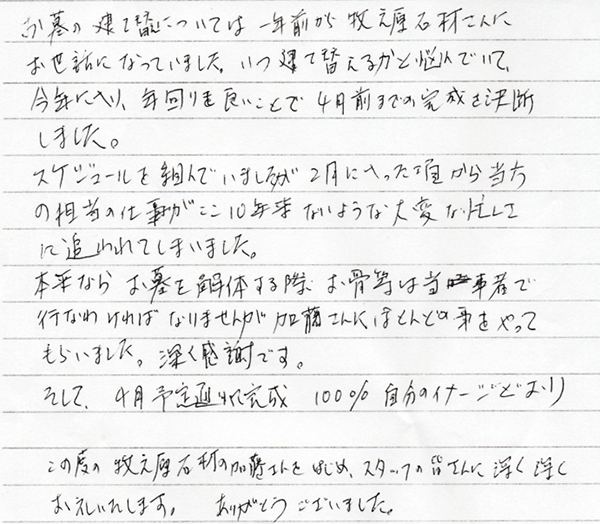 お墓の建て替については一年前から牧之原石材さんに
お世話になっていました。いつ建て替えるかと悩んでいて、
今年に入り、年回りも良いことで4月前までの完成を決断
しました。
スケジュールを組んでいましたが2月に入った頃から当方
の担当の仕事がここ10年来ないような大変な忙しさ
に追われてしまいました。
本来なら お墓を解体する際 お骨等は当事者で
行なわければなりませんが加藤さんにほとんどの事をやって
もらいました。深く感謝です。
そして、4月予定通りに完成 100% 自分のイメージどおり
この度の牧之原石材の加藤さんをはじめ、スタッフの皆さんに深く深く
お礼いたします。 ありがとうございました。